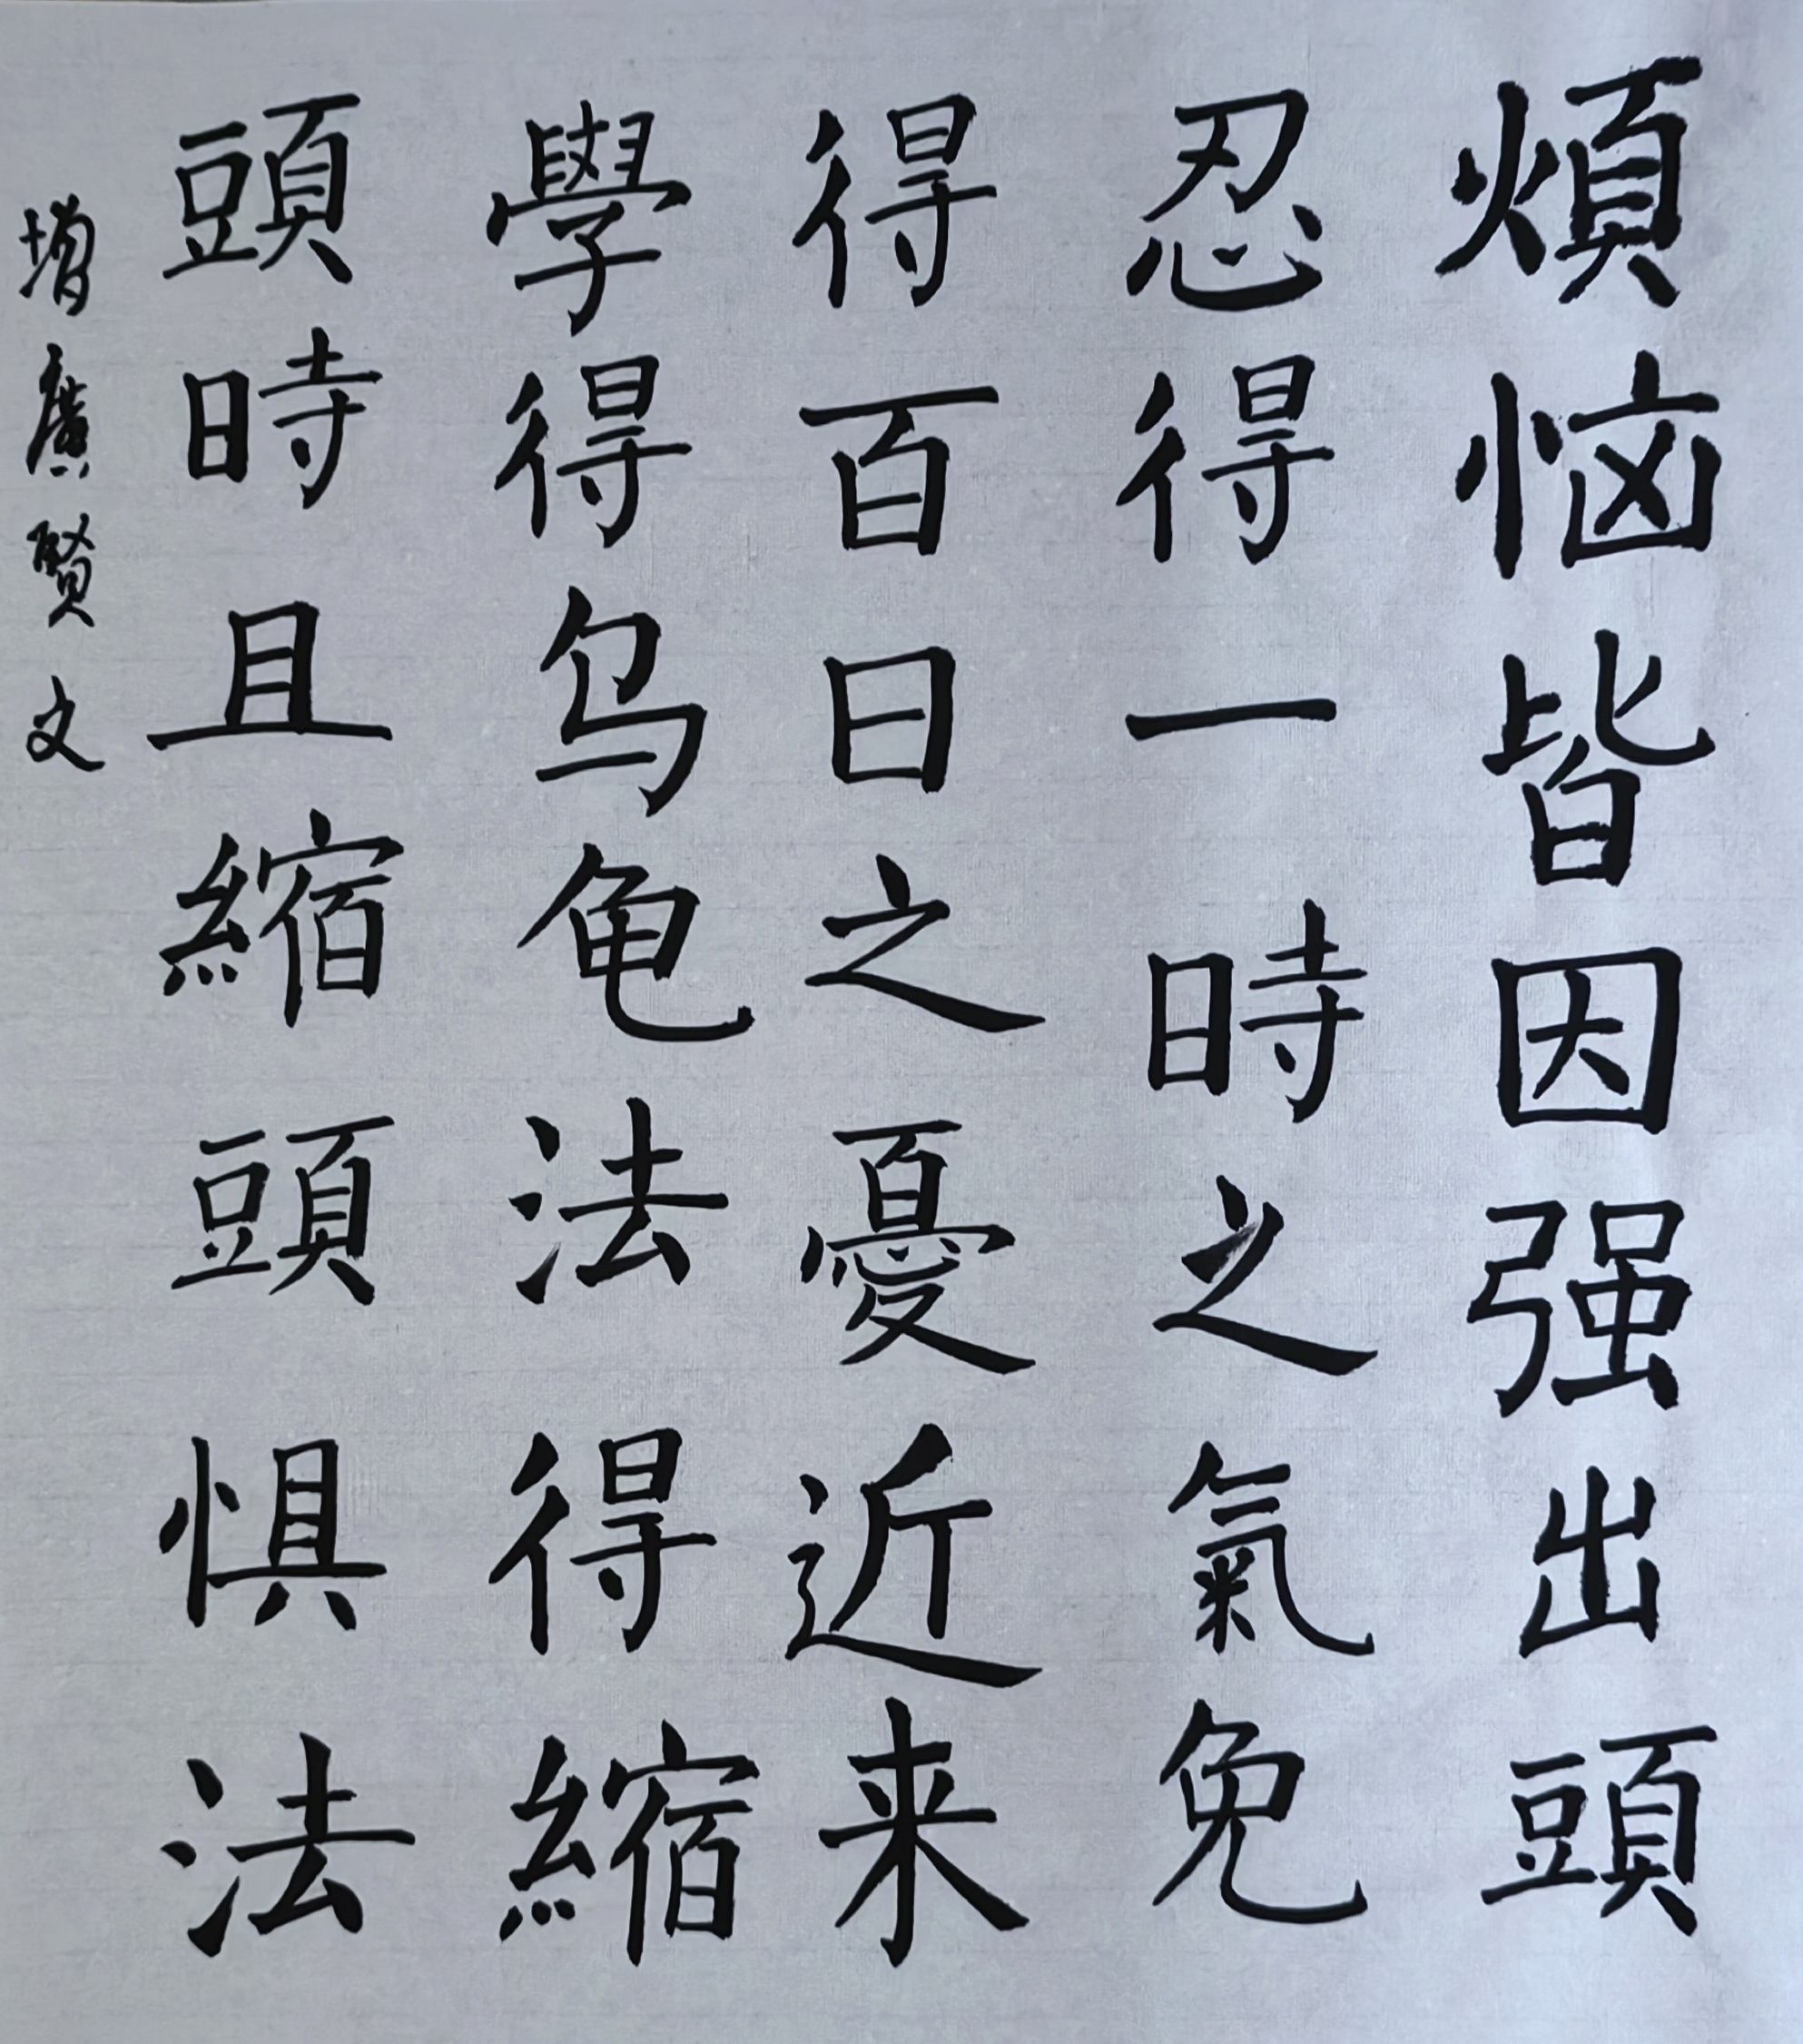 煩恼皆因强出頭
忍得一時之氣免
得百日之憂近来
學得乌龟法得縮
頭時且縮頭惧法
增廣賢文